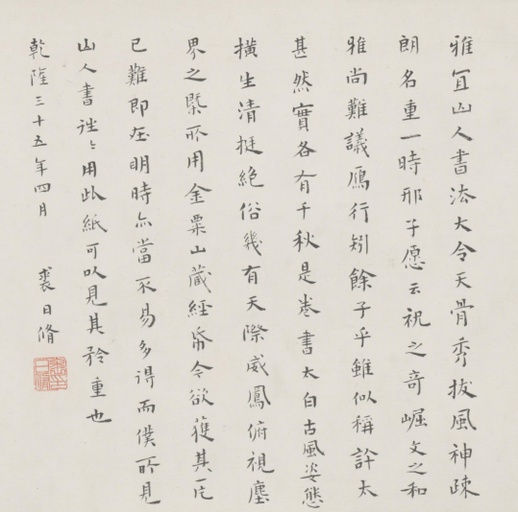 雅宜山人書法大令天骨秀拔風神疎
朗名重一時邢子愿云祝之奇崛文之和
雅尚難議鴈行矧餘子乎雖似稱許太
甚然實各有千秋是卷書太白古風姿態
橫生清挺絕俗幾有天際威鳳俯視塵
界之槩所用金粟山藏經帋今欲獲其一片
已難即在明時亦當不易多得而僕所見
山人書徃〻用此紙可以見其矜重也
乾隆三十五年四月 裘日脩